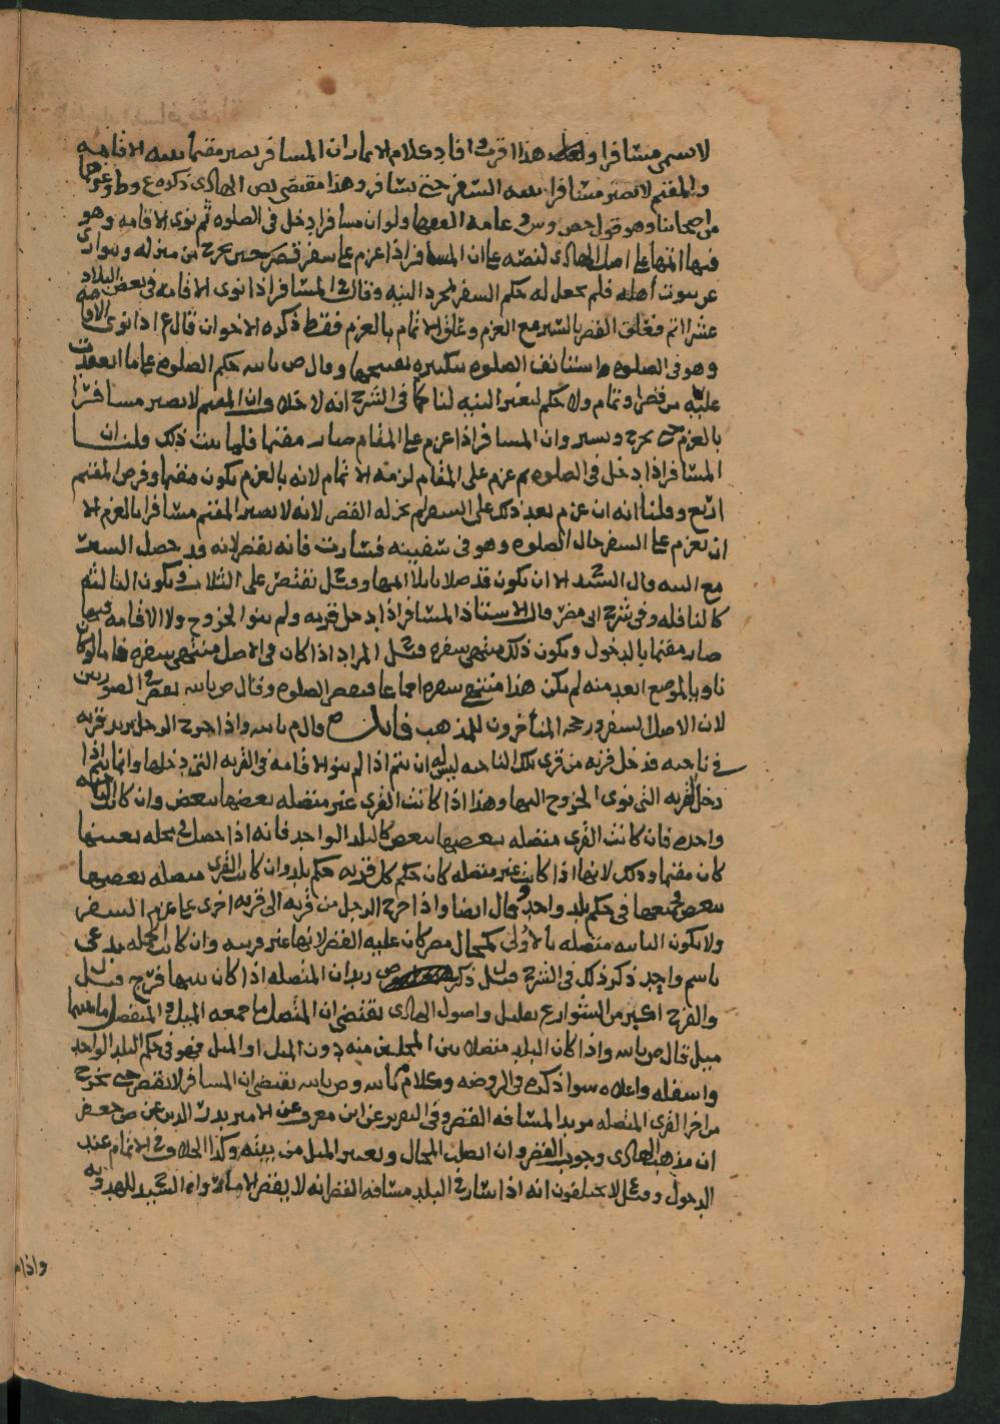 لا يسمى مسافرا هذا اقرب وافاد كلام الامام ان المسافر يصير مقيما بنيه الاقامه
والمقيم لا يصير مسافرا بنيه السفر حتى يسافر وهذا مقتضى نص الهادى ذكره ع وط وغيرهما
من اصحابنا وهو قول وش وعامه الفقها ولو ان مسافرا دخل فى الصلوه ثم نوى الاقامه وهو
فيها اتمها على اصل الهادى لنصه على ان المسافر اذا عزم على سفر قصر حين يخرج من منزله ويتوارى
عن بيوت أهله فلم يجعل له حكم السفر لمجرد النيه وقال فى المسافر اذا نوى الاقامه فى بعض البلاد
عشرا اتم فعلق القصر بالسير مع العزم وعلق الاتمام بالعزم فقط ذكره الاخوان قال ع اذا نوى الاقامه
وهو فى الصلوه استانف الصلوه بتكبيره وقال ص بالله حكم الصلوه على ما انعقدت
عليه من قصر او تمام ولا حكم لتغير النيه لنا كما فى الشرح انه لا خلاف وان المقيم لا يصير مسافرا
بالعزم حتى يخرج ويسير وان المسافر اذا عزم على المقام صار مقيما فلما ثبت ذلك وقلنا ان
المسافر اذا دخل فى الصلوه ثم عزم على المقام لزمه الاتمام لانه بالعزم يكون مقيما وفرض المقيم
اربع وقلنا انه ان عزم بعد ذلك على السفر لم يجز له القصر لانه لا يصير المقيم مسافرا بالعزم الا
ان يعزم على السفر حال الصلوه وهو فى سفينه فسارت فانه يقصر لانه قد حصل السير
مع النيه قال السيد الا ان يكون قد صلا ثلاثا اتمها وقيل يقتصر على الثلاث ويكون الثالثه
كالنافله وفى شرح ابى مضر قال الاستاذ المسافر اذا دخل قريه ولم ينو الخروج ولا الاقامه فيها
صار مقيما بالدخول ويكون ذلك منتهى سفره وقيل المراد اذا كان فى الاصل منتهى سفره فاما لو كان
ناويا لموضع ابعد منه لم يكن هذا منتهى سفره اجماعا فيقصر الصلوه وقال ص بالله يقصر فى الصورتين
لان الاصل السفر ورجحه المتأخرون للمذهب فايده قال م بالله واذا خرج الرجل يريد قريه
فى ناحيه فدخل قريه من قرى تلك الناحيه ليس له ان يتم اذا لم ينو الاقامه فى القريه التى دخلها وانما يتم اذا
دخل القريه التى نوى الخروج اليها وهذا اذا كانت القرى غير متصله بعضها ببعض وان كانت الناحيه
واحده فان كانت القرى متصله بعضها ببعض كالبلد الواحد فانه اذا حصل فى محله بعينها
كان مقيما وذلك لانها اذا كانت غير متصله كان حكم كل قريه حكم بلد وان كانت القرى متصله بعضها
ببعض فجميعها فى حكم بلد واحد وقال ايضا واذا خرج الرجل من قريه الى قريه اخرى على عزم السفر
ولا يكون الثانيه متصله بالأولى كمحال مصر كان عليه القصر لانها غير قريبه وان كانت الجمله تدعى
باسم واحد ذكر ذلك فى الشرح قيل ذكر ص ان المتصله اذا كان بينها فرج قيل
والفرج اكبر من الشوارع بقليل واصول الهادى يقتضى ان المتصل ما جمعه الميل والمنفصل ما بينهما
ميل قال ص بالله واذا كان البلد متصلا بين المحلتين منه دون الميل او الميل فهو فى حكم البلد الواحد
واسفله واعلاه سوا ذكره فى الروضه وكلام م بالله وص بالله يقتضى ان المسافر لا يقصر حتى يخرج
من اخر القرى المتصله مريدا لمسافه القصر وفى التقرير عن ابن معرف عن الامير بدر الدين عن ص جعفر
ان مذهب الهادى وجوب القصر وان اتصلت المحال ويعتبر الميل من بيته وكذا الخلاف فى الاتمام عند
الدخول وقيل لا يختلفون انه اذا سار فى البلد مسافه القصر انه لا يقصر السيد للهدويه
واذا